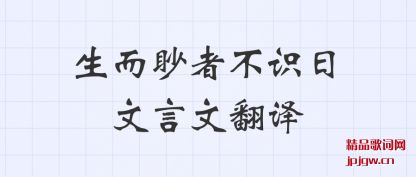 生而眇者不识日
文言文翻译
精品歌词网
jpjgw.cn